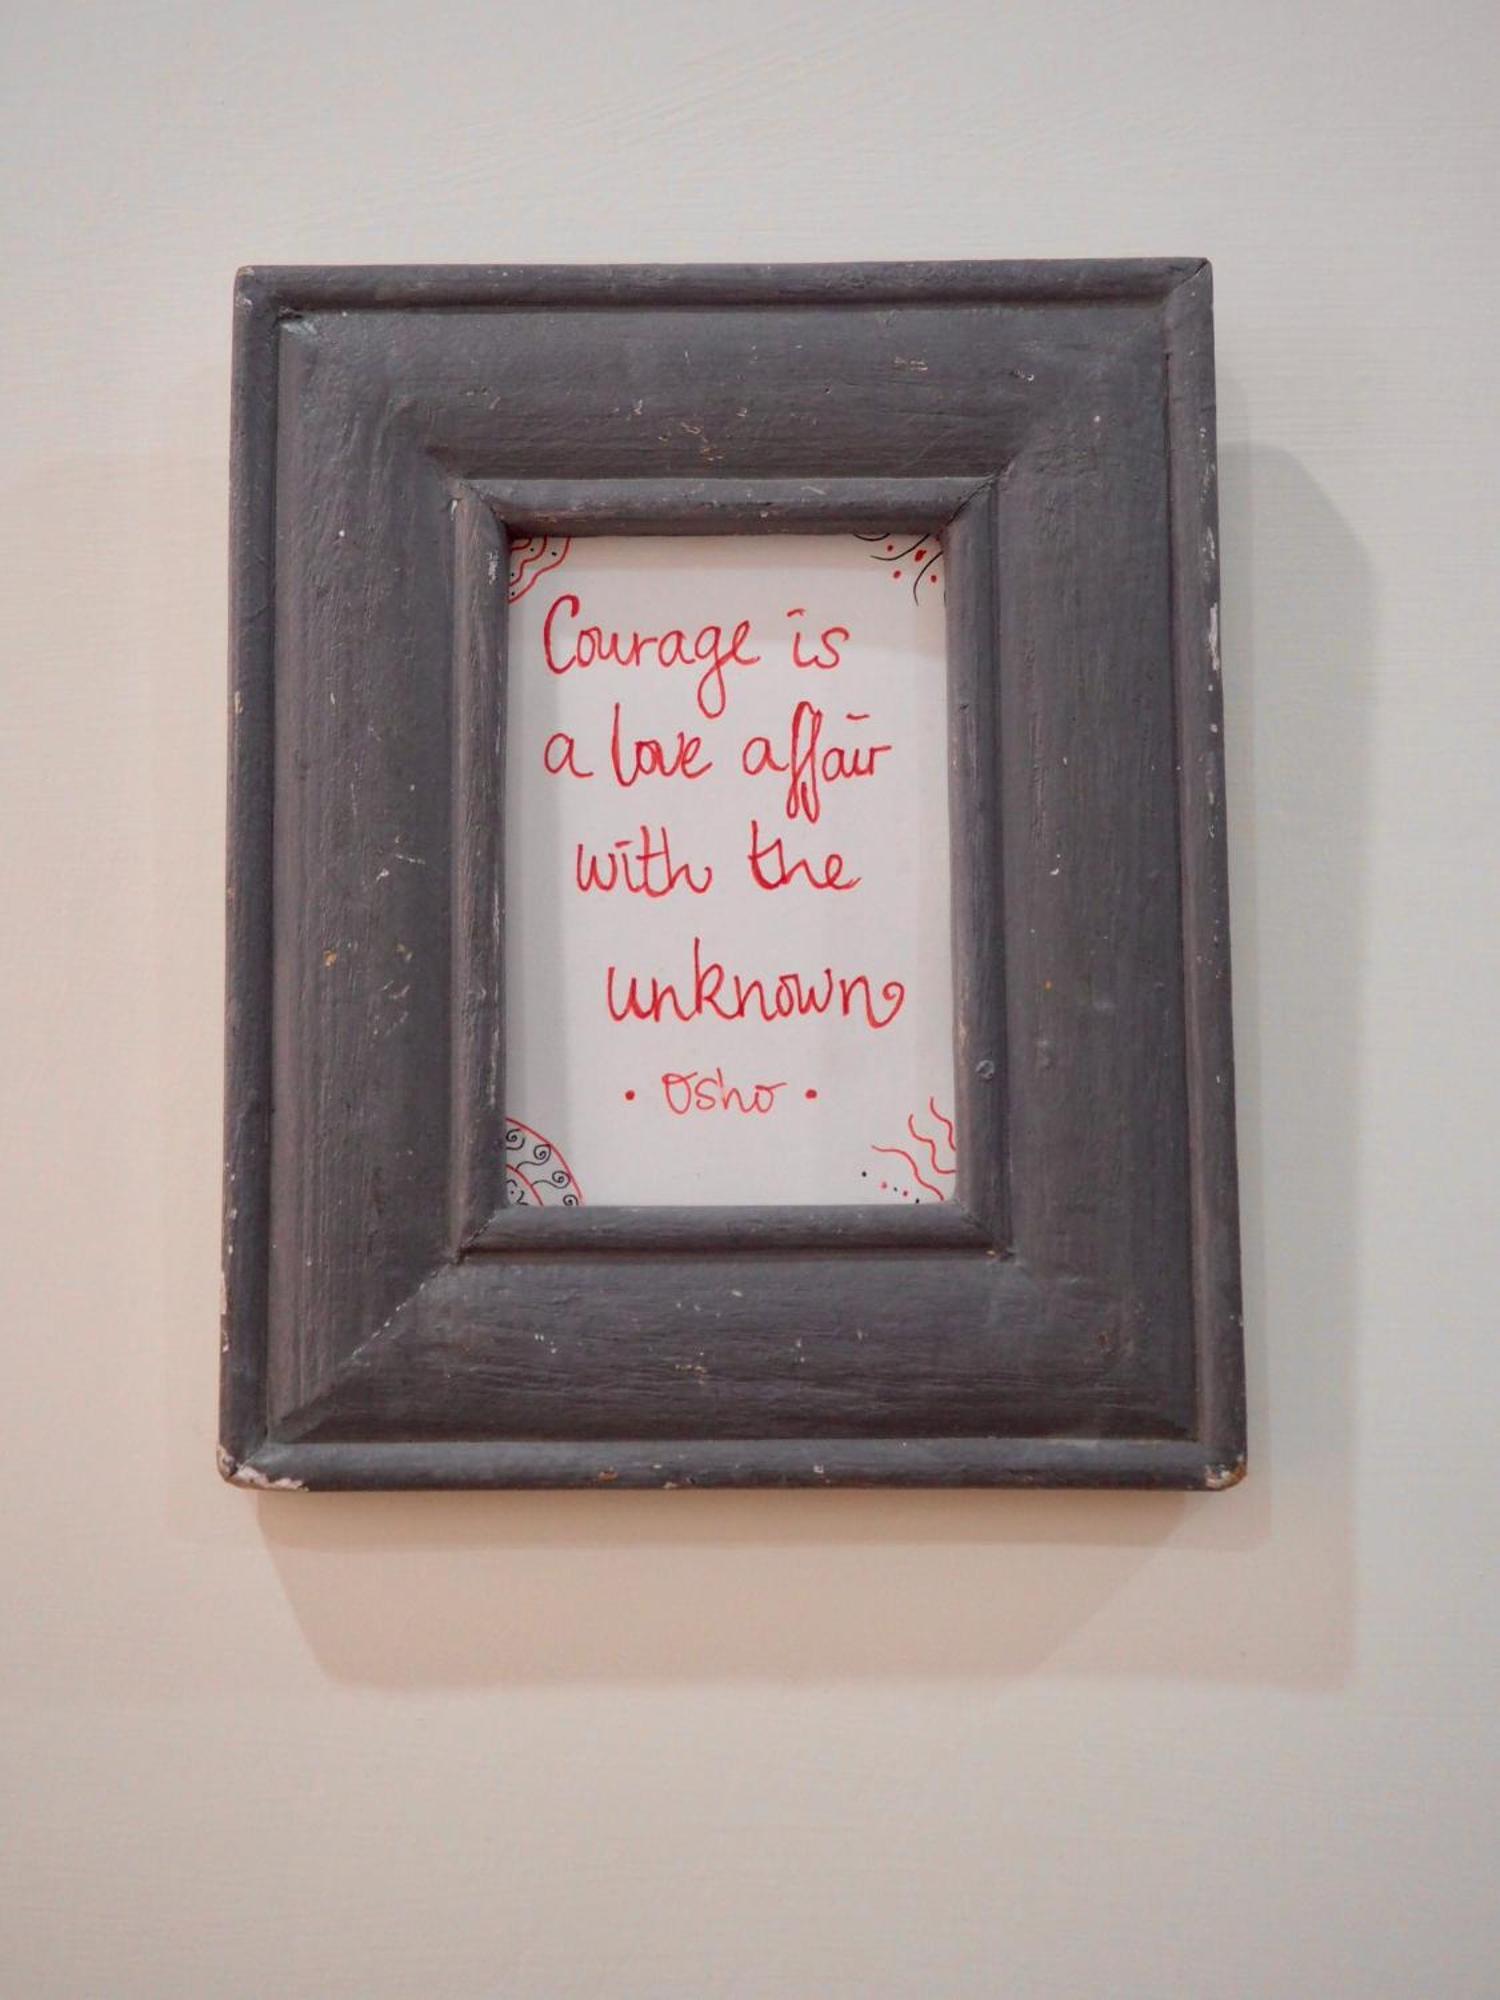 Courage is
a love affair
with the
unknown
• Osho •